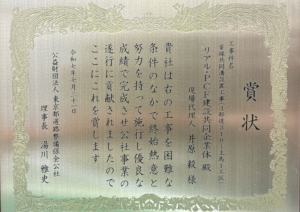 賞状
工事件名
リアル・PCF建設共同企業体 殿
現場代理人 井原 毅 様
貴社は右の工事を困難な
条件のなかで終始熱意と
努力を持って施行し優良な
成績で完成させ公社事業の
遂行に貢献されましたので
ここにこれを賞します
令和七年十月二十一日
公益財団法人 東京都道路整備保全公社
理事長 湯川 雅史